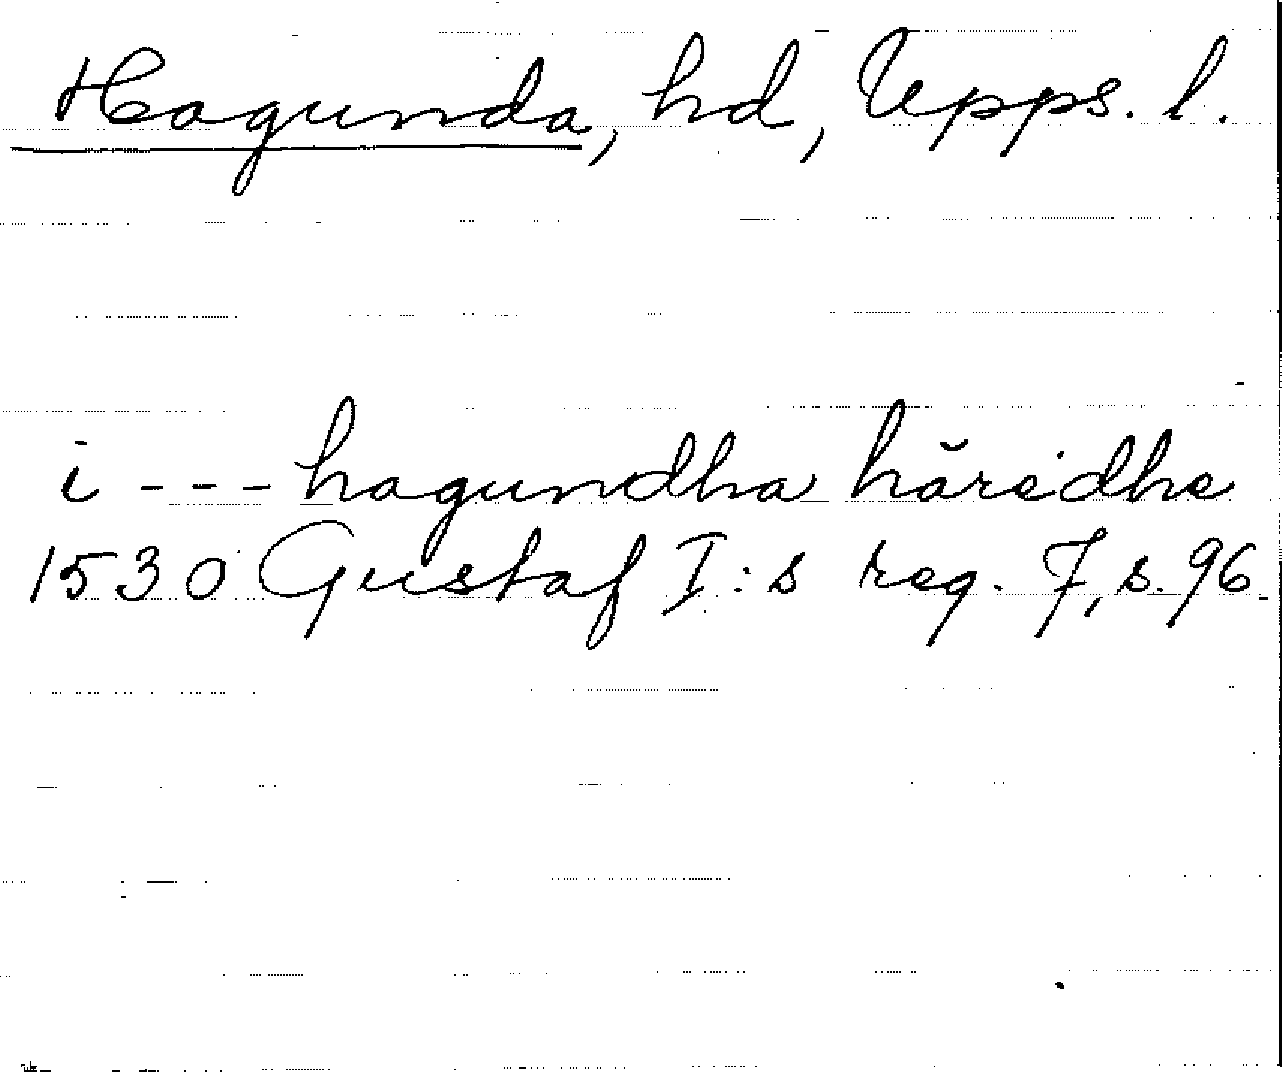 Hagunda, hd, Upps. l.
i --- hagundha häredhe
1530 Gustaf I:s reg. 7, s. 96.